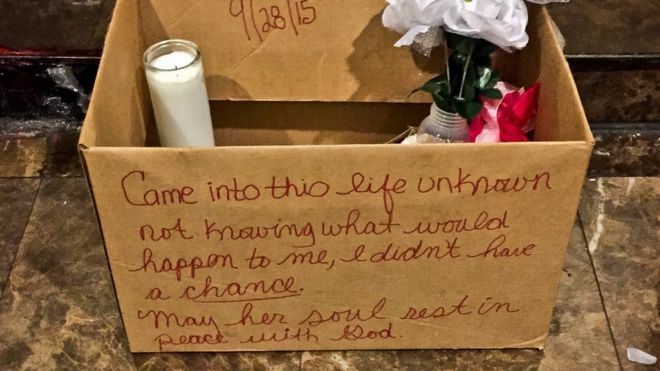 9/28/15
Came into this life unknown
not knowing what would
happen to me, I didn't have
a chance.
May her soul rest in
peace with God.